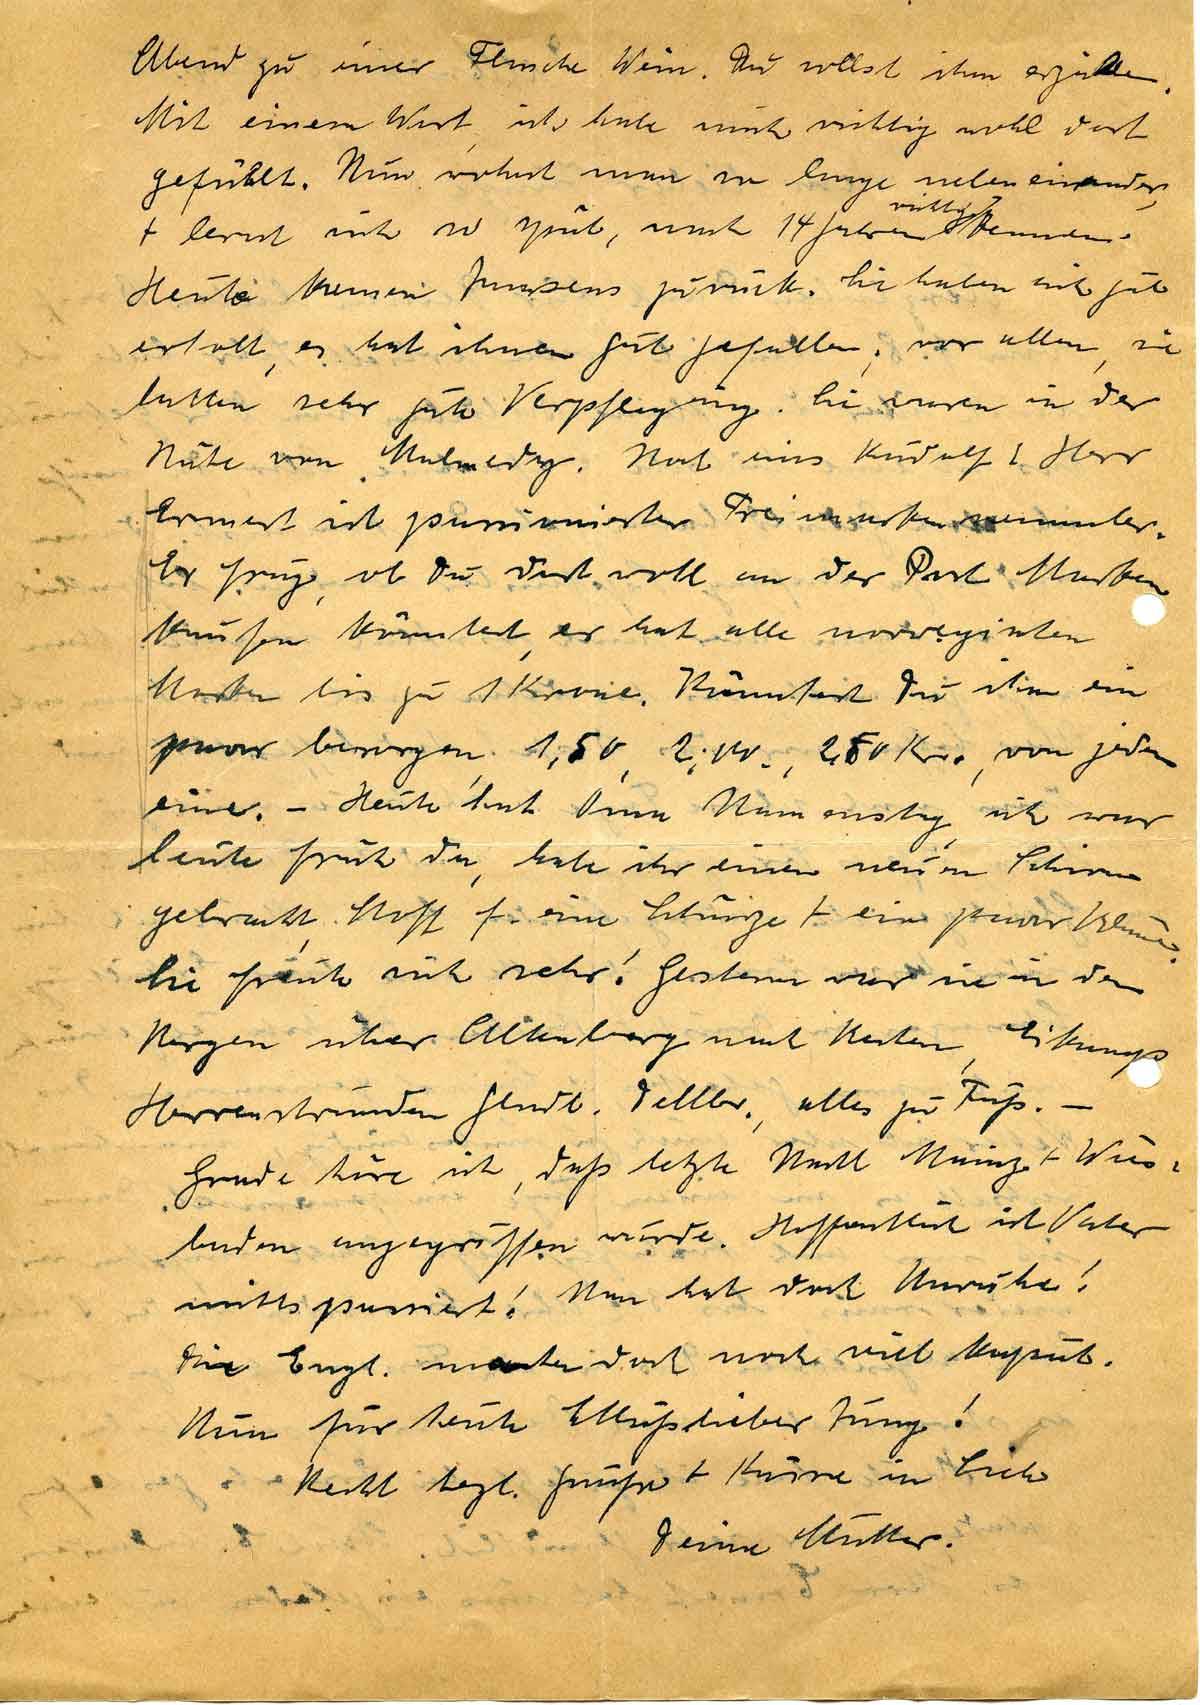 Abend zu einer Flasche Wein. Du sollst ihm erzählen.
Mit einem Wort, ich habe mich richtig wohl dort
gefühlt. Nun wohnt man so lange nebeneinander,
+ lernt sich so spät, nach 14 Jahren richtig kennen.
Heute kamen Janssens zurück. Sie haben sich gut
erholt, es hat ihnen gut gefallen, vor allem, sie
hatten sehr gute Verpflegung. Sie waren in der
Nähe von Malmedy. Noch eins Rudolf! Herr
Ermert ist passionierter Freimarkensammler.
Er frug, ob Du dort wohl an der Post Marken
kaufen könntest, er hat alle norwegischen
Marken bis zu 1 Krone. Könntest Du ihm ein
paar besorgen. 1,50, 2,00., 2,50 Kr., von jeden
eine. – Heute hat Oma Namenstag, ich war
heute früh da, habe ihr einen neuen Schirm
gebracht, Stoff f. eine Schürze + ein paar Blumen.
Sie freute sich sehr! Gestern war sie in dem
Regen über Altenberg nach
Herrenstrunden Gladb. Dellbr., alles zu Fuß. –
Grade höre ich, daß letzte Nacht Mainz + Wies-
baden angegriffen wurde. Hoffentlich ist Vater
nichts passiert! Man hat doch Unruhe!
Die Engl. machen doch noch viel kaput.
Nun für heute Schluß lieber Jung!
Recht hzl. Grüße + Küsse in Liebe
Deine Mutter.